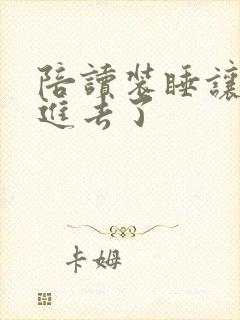 陪讀裝睡讓
進去了
卡姆